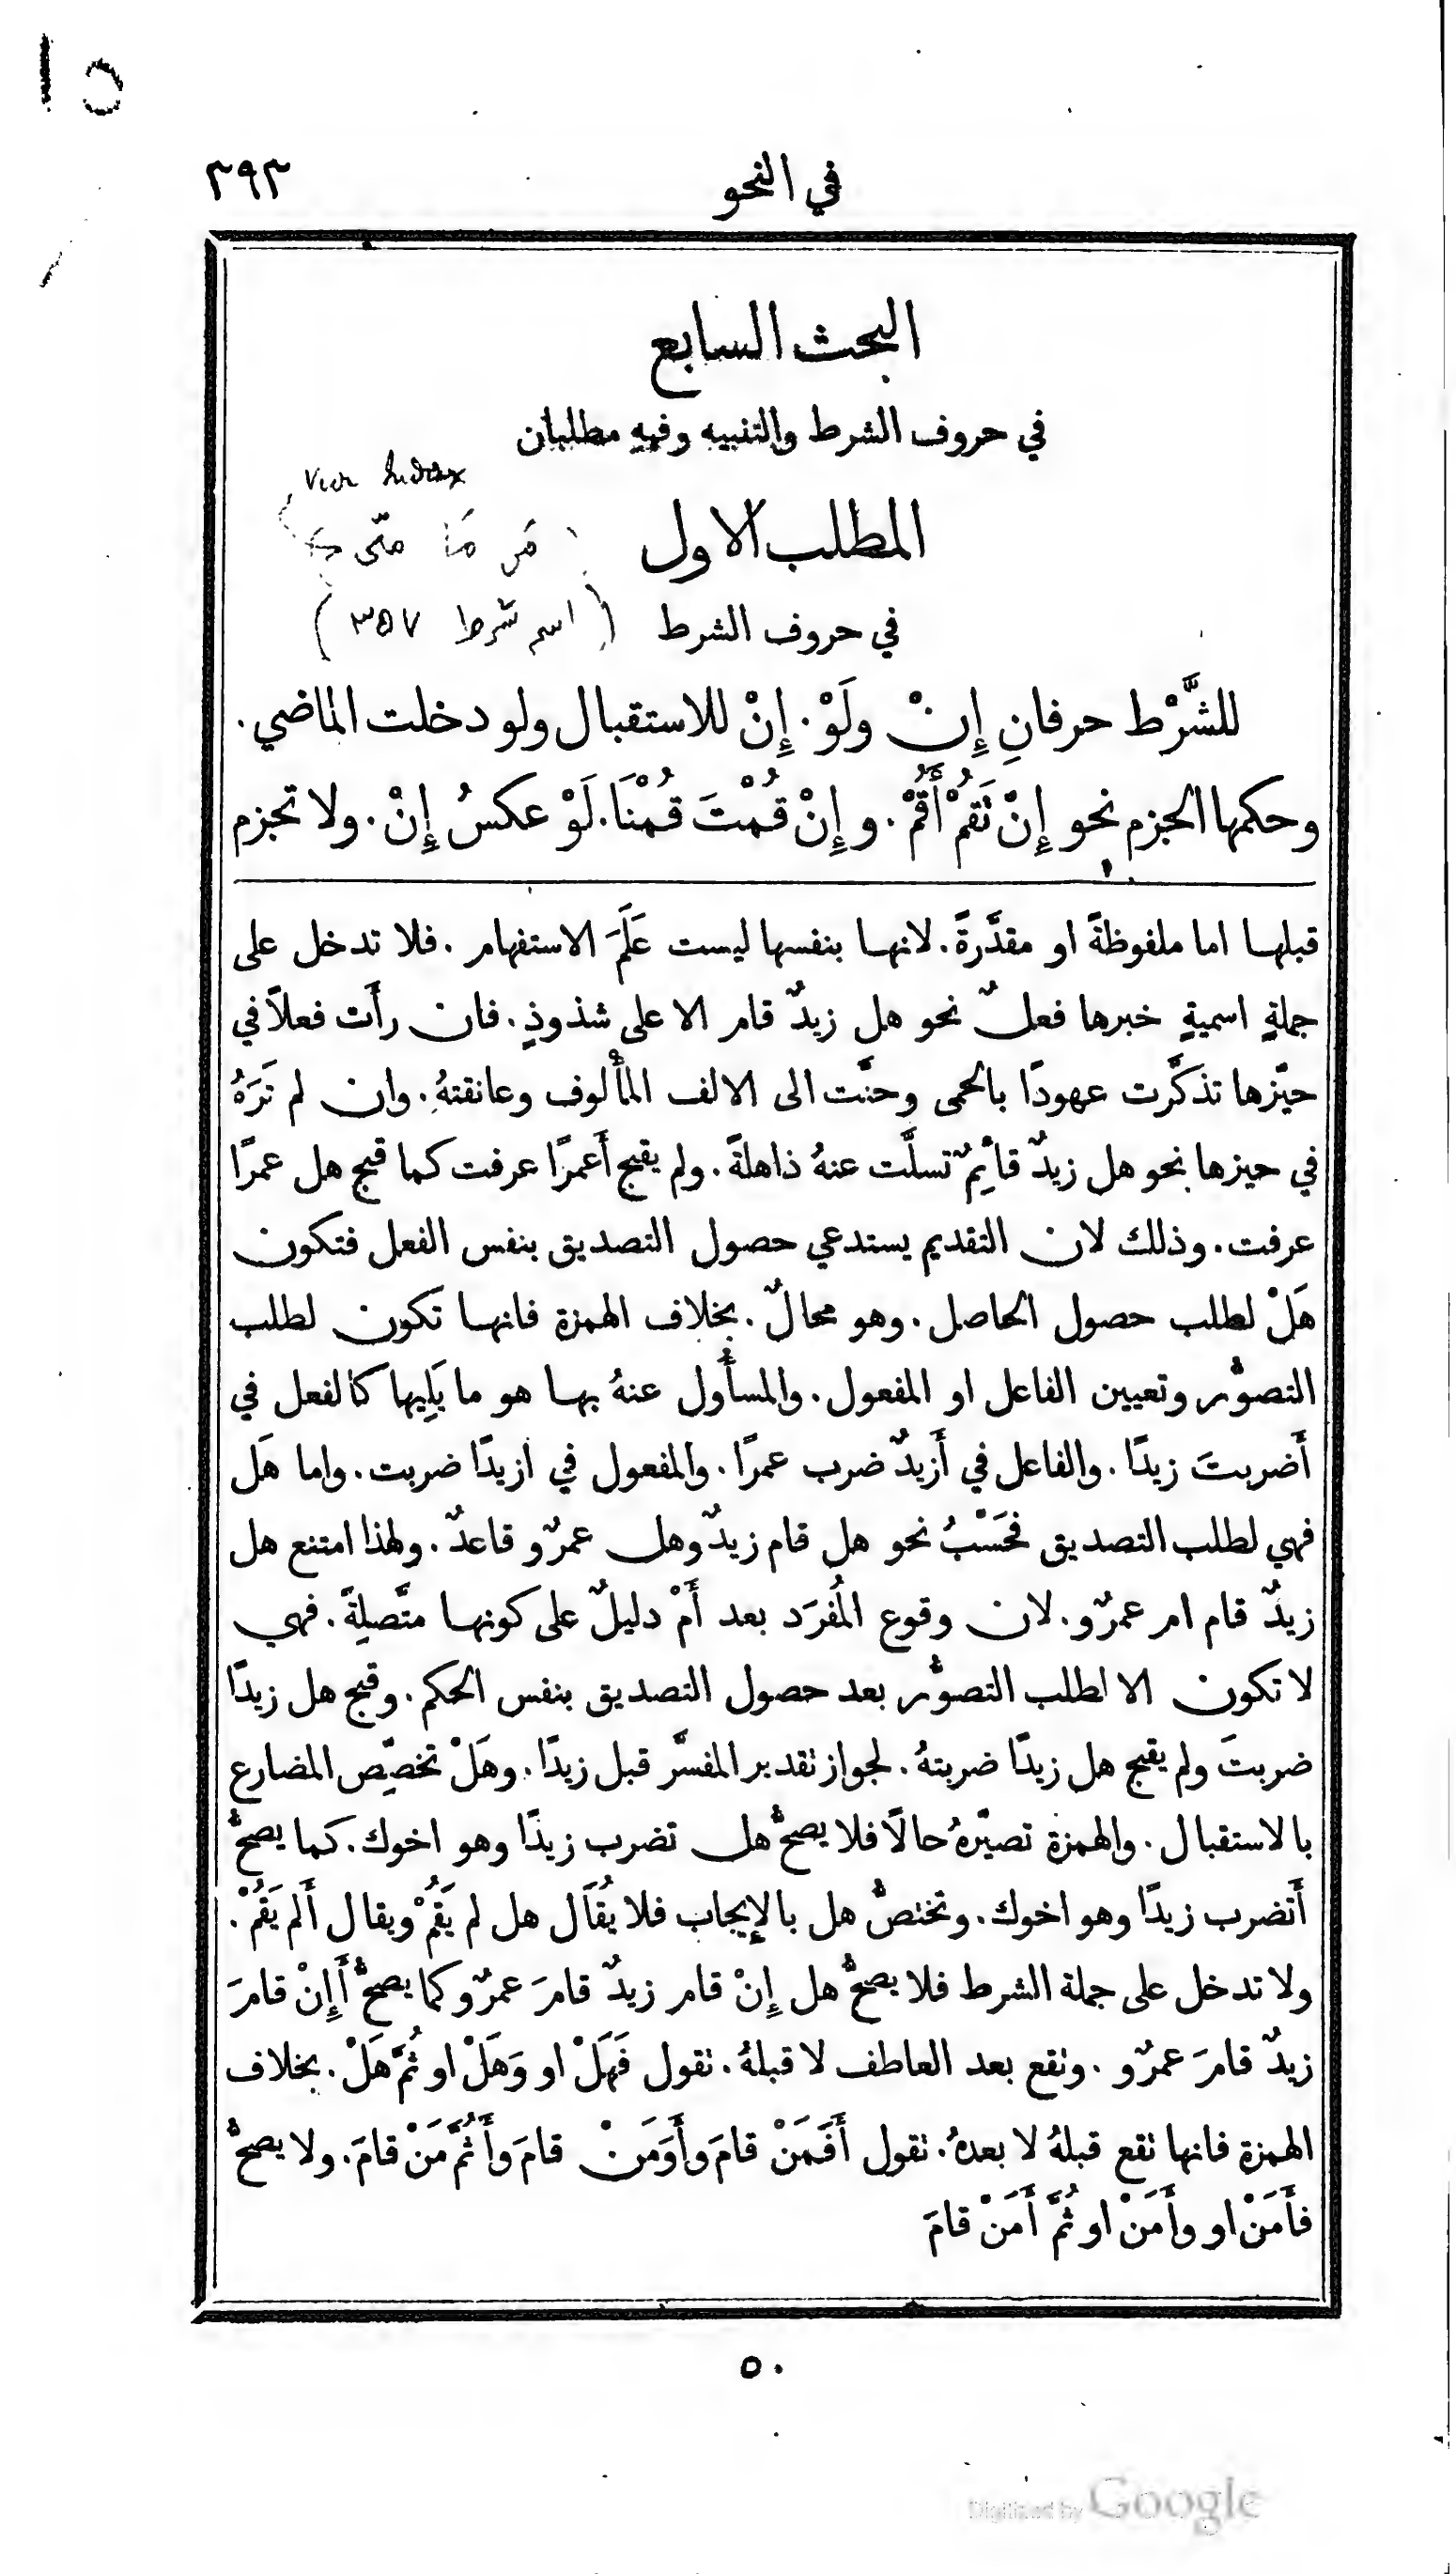 في النحو
٣٩٣
البحث السابع
في حروف الشرط والتنبيه وفيهِ مطلبان
المطلب الاول
في حروف الشرط (اسم شرط ٣٥٧)
للشَّرْط حرفانِ إِنْ ولَوْ. إِنْ للاستقبال ولو دخلت الماضي.
وحكمها الجزم نحو إِنْ نَقُمْ أَقُمْ. و إِنْ قُمْتَ قُمْنَا. لَوْ عكسُ إِنْ. ولا تجزم
قبلها اما ملفوظةً او مقدَّرةً. لانها بنفسها ليست عَلَمَ الاستفهام. فلا تدخل على
جملةٍ اسميةٍ خبرها فعلٌ نحو هل زيدٌ قام الا على شذوذٍ. فان رأَت فعلاً في
حيّزها تذكَّرت عهودًا بالحمى وحنَّت الى الالف المأْلوف وعانقتهُ. وان لم تَرَهُ
في حيزها نحو هل زيدٌ قائِمٌ تسلَّت عنهُ ذاهلةً. ولم يقبح أَعمرًا عرفت كما قبح هل عمرًا
عرفت. وذلك لان التقديم يستدعي حصول التصديق بنفس الفعل فتكون
هَلْ لطلب حصول الحاصل. وهو محالٌ. بخلاف الهمزة فانها تكون لطلب
التصوُّر وتعيين الفاعل او المفعول. والمسأُول عنهُ بها هو ما يَلِيها كالفعل في
أَضربتَ زيدًا. والفاعل في أَزيدٌ ضرب عمرًا. والمفعول في ازيدًا ضربت. واما هَل
فهي لطلب التصديق فحَسْبُ نحو هل قام زيدٌ وهل عمرٌو قاعدٌ. ولهذا امتنع هل
زيدٌ قام ام عمرٌو. لان وقوع المُفرَد بعد أَمْ دليلٌ على كونها متَّصِلةً. فهي
لا تكون الا لطلب التصوُّر بعد حصول التصديق بنفس الحكم. وقبح هل زيدًا
ضربتَ ولم يقبح هل زيدًا ضربتهُ. لجواز نقدير المفسَّر قبل زيدًا. وهَلْ تخصِّص المضارع
بالاستقبال. والهمزة تصيّرهُ حالاً فلا يصحُّ هل تضرب زيدًا وهو اخوك. كما يصحُّ
أَتضرب زيدًا وهو اخوك. وتختصُّ هل بالإِيجاب فلا يُقَال هل لم يَقُمْ ويقال أَلم يَقُمْ.
ولا تدخل على جملة الشرط فلا يصحُّ هل إِنْ قام زيدٌ قامَ عمرٌو كما يصحُّ أَإِنْ قامَ
زيدٌ قامَ عمرٌو. ونقع بعد العاطف لا قبلهُ. نقول فَهَلْ او وَهَلْ او ثُمَّ هَلْ. بخلاف
الهمزة فانها نقع قبلهُ لا بعدهُ. نقول أَفَمَنْ قامَ وأَوَمَنْ قامَ وأَثُمَّ مَنْ قامَ. ولا يصحُّ
فأَمَنْ او وأَمَنْ او ثُمَّ أَمَنْ قامَ
٥٠
Digitized by Google